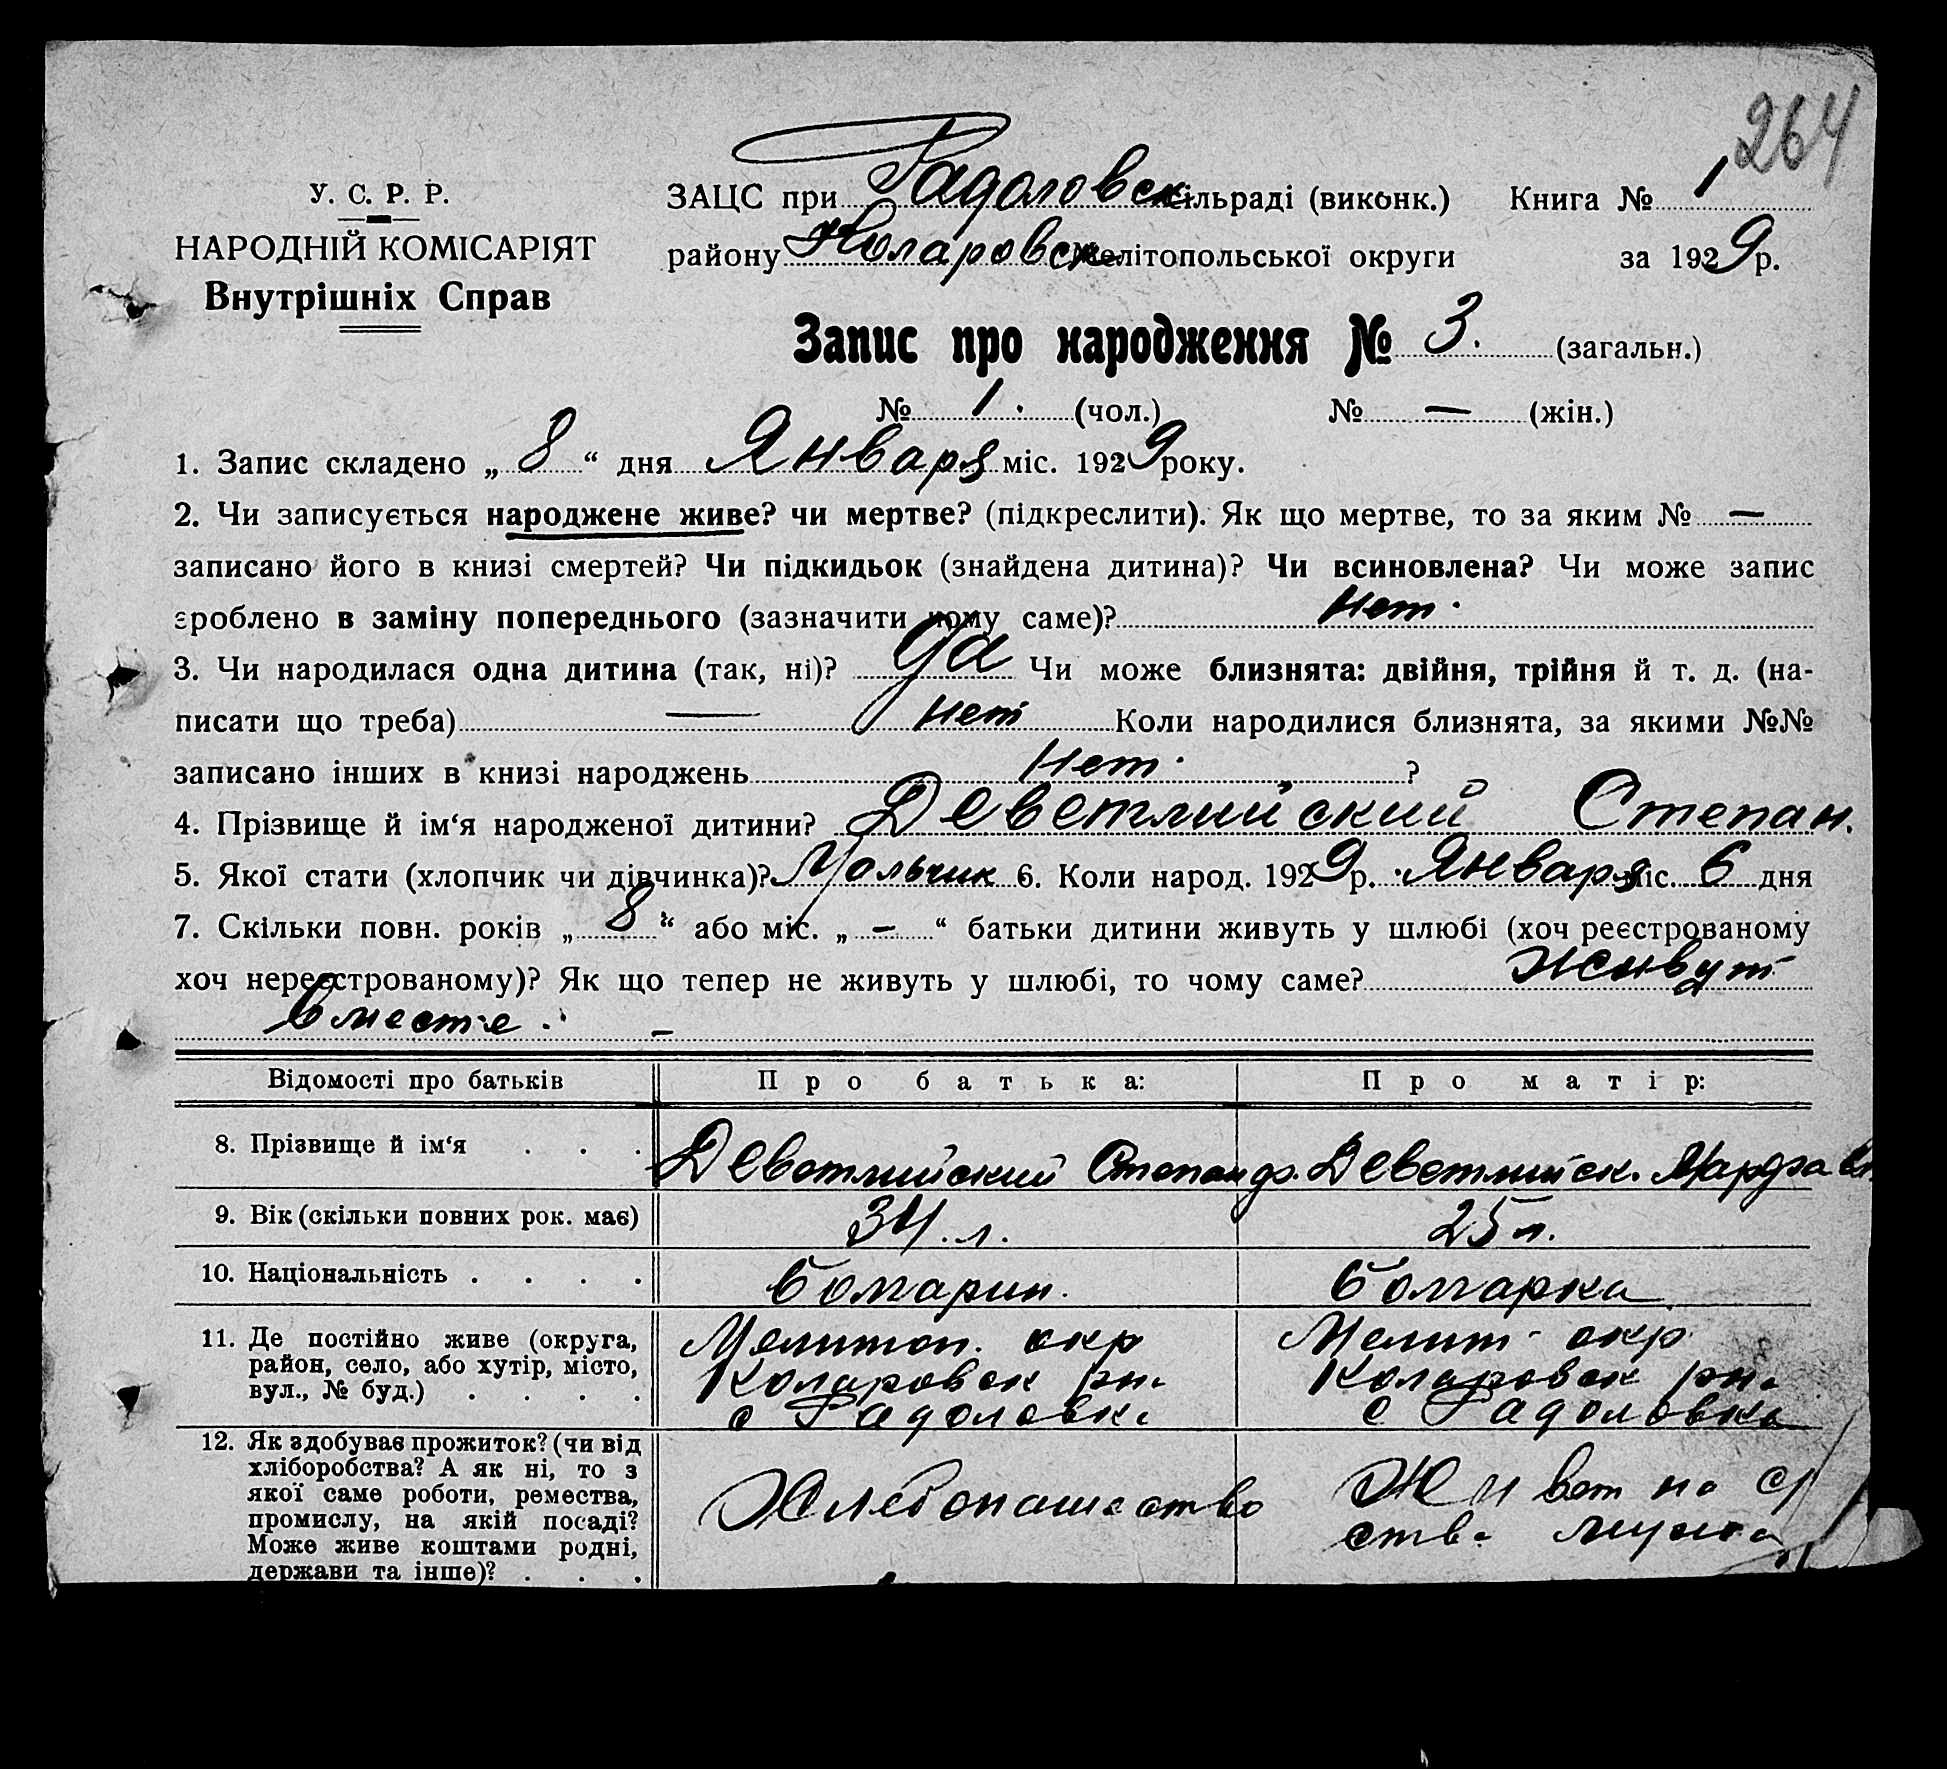 264
У. С. Р. Р.
НАРОДНІЙ КОМІСАРІЯТ
Внутрішніх Справ
ЗАЦС при Радоловск сільраді (виконк.) Книга № 1
району Коларовск Мелітопольської округи за 1929 р.
Запис про народження № 3. (загальн.)
№ 1. (чол.) № — (жін.)
1. Запис складено „ 8 “ дня Января міс. 1929 року.
2. Чи записується народжене живе? чи мертве? (підкреслити). Як що мертве, то за яким № —
записано його в книзі смертей? Чи підкидьок (знайдена дитина)? Чи всиновлена? Чи може запис
зроблено в заміну попереднього (зазначити чому саме)? Нет.
3. Чи народилася одна дитина (так, ні)? Да Чи може близнята: двійня, трійня й т. д. (на-
писати що треба) — нет Коли народилися близнята, за якими №№
записано інших в книзі народжень Нет. ?
4. Прізвище й ім‘я народженої дитини? Деветлийский Степан.
5. Якої стати (хлопчик чи дівчинка)? Мальчик 6. Коли народ. 1929 р. Января міс. 6 дня
7. Скільки повн. років „ 8 “ або міс. „ — “ батьки дитини живуть у шлюбі (хоч реєстрованому
хоч нереєстрованому)? Як що тепер не живуть у шлюбі, то чому саме? живут
вместе. —
Відомості про батьків Про батька: Про матір:
8. Прізвище й ім‘я . . . Деветлийский Степан Деветлийск.
9. Вік (скільки повних рок. має) 34. л. 25 л.
10. Національність . . . . болгарин. болгарка
11. Де постійно живе (округа, Мелитоп. окр Мелит. окр
район, село, або хутір, місто, Коларовск рн. Коларовск рн.
вул., № буд.) . . . . с Радоловк. с Радоловка
12. Як здобуває прожиток? (чи від
хліборобства? А як ні, то з
якої саме роботи, ремества, Хлебопашество Живет на ср
промислу, на якій посаді? ств. мужа
Може живе коштами родні,
держави та інше)? . . .